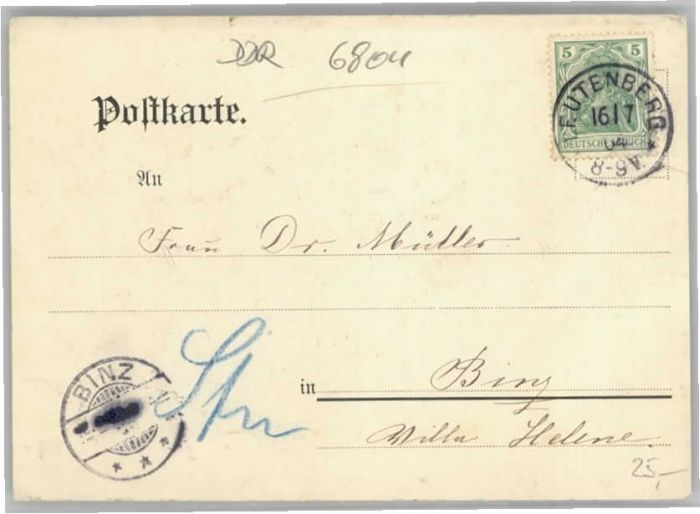 DDR 6804
5 5
DEUTSCHES REICH
LEUTENBERG
16 17
04
8-9V.
Postkarte.
An
Frau Dr. Müller
in Binz
Villa Helene.
BINZ
25,-